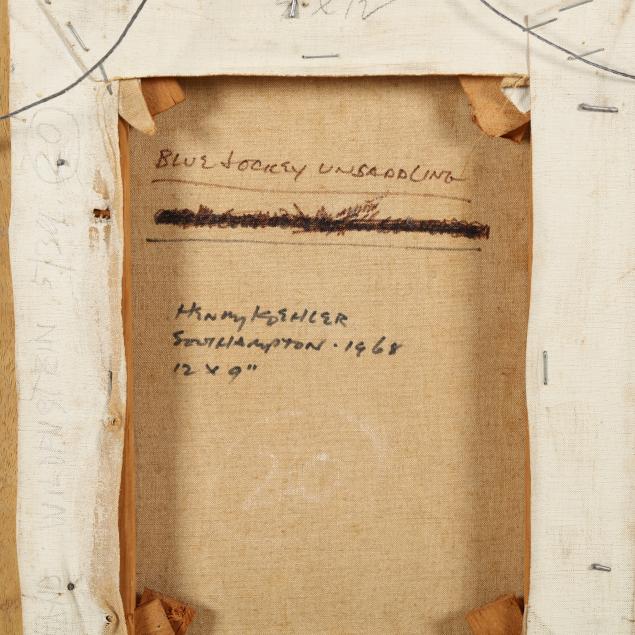 x 12
BLUE JOCKEY UNSADDLING
HENRY KOEHLER
SOUTHAMPTON · 1968
12 x 9"
20
20